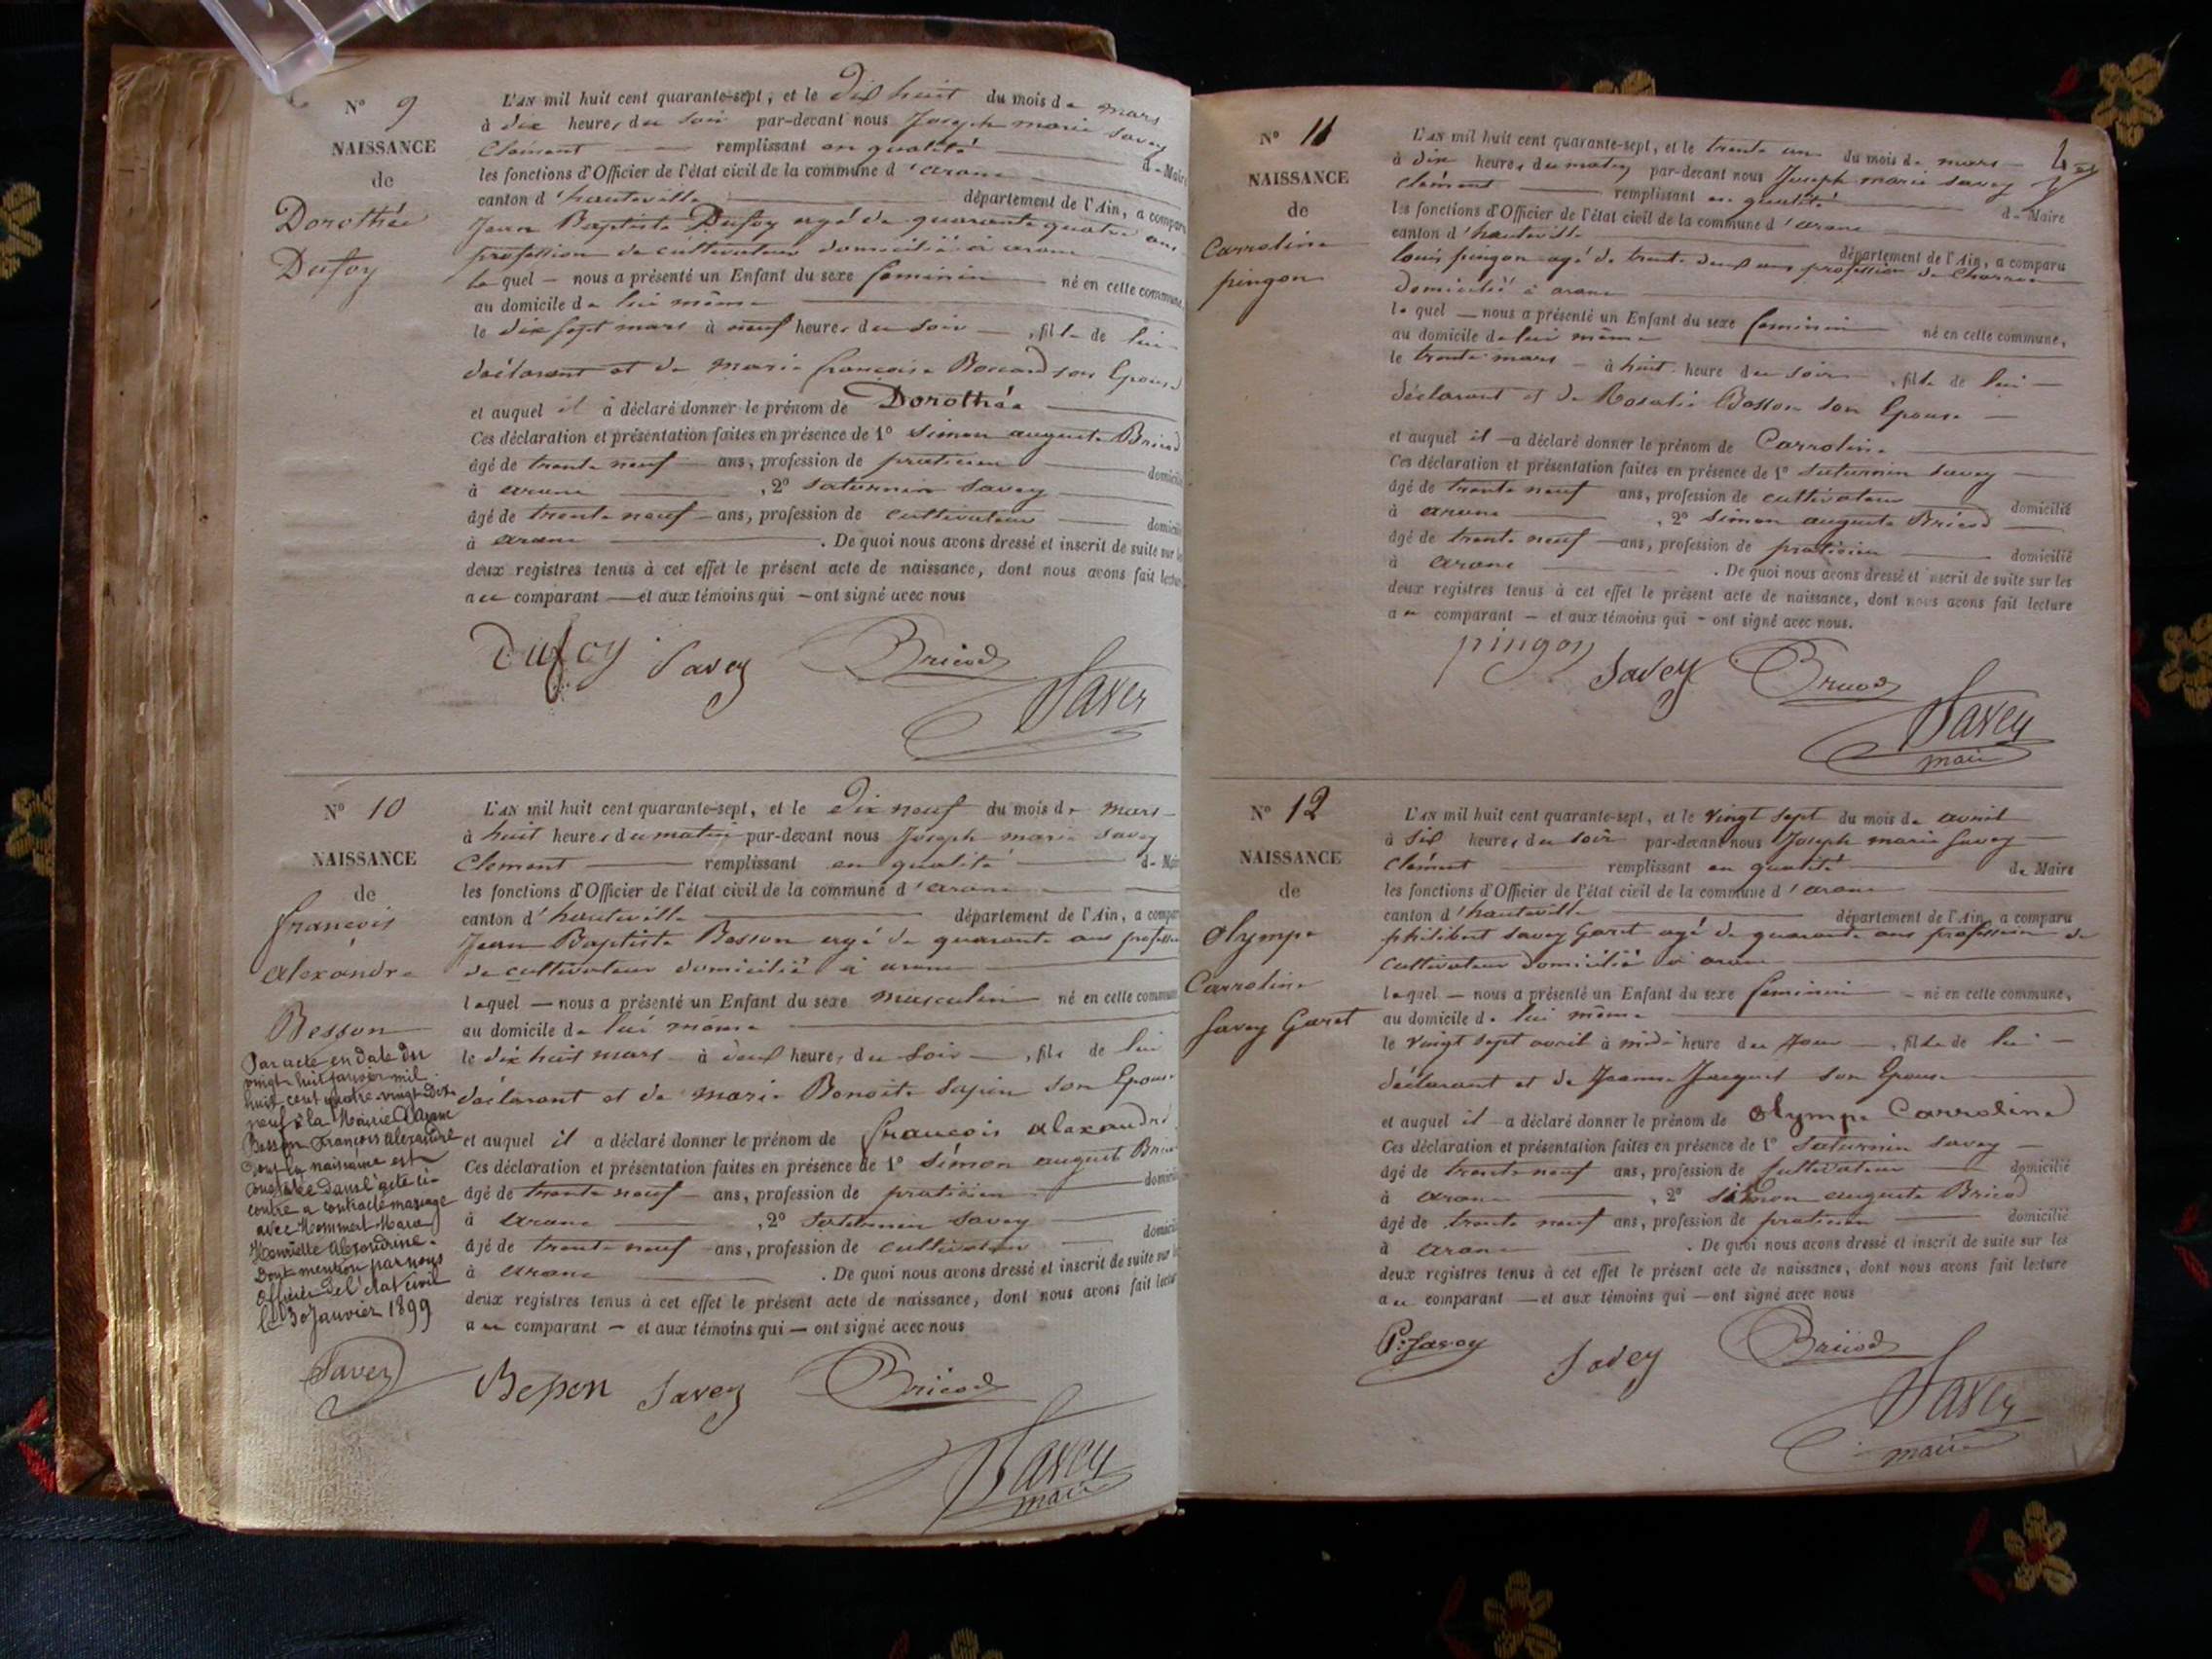 N° 9
NAISSANCE
de
Dorothée
Dufoy
L'AN mil huit cent quarante-sept, et le dix huit du mois de mars
à dix heures du soir par-devant nous Joseph marie Savey
Clément remplissant en qualité de Maire
les fonctions d'Officier de l'état civil de la commune d'arane
canton d'hauteville département de l'Ain, a comparu
Jean Baptiste Dufoy agé de quarante quatre ans
profession de cultivateur domicilié a arane
lequel nous a présenté un Enfant du sexe feminin né en cette commune
au domicile de lui même
le dix sept mars à neuf heures du soir, fille de lui
déclarant et de marie françoise Boccard son Epouse
et auquel il a déclaré donner le prénom de Dorothée
Ces déclaration et présentation faites en présence de 1° Simon auguste Bricod
âgé de trente neuf ans, profession de praticien domicilié
à arane, 2° Saturnin Savey
âgé de trente neuf ans, profession de cultivateur domicilié
à arane. De quoi nous avons dressé et inscrit de suite sur les
deux registres tenus à cet effet le présent acte de naissance, dont nous avons fait lecture
au comparant et aux témoins qui ont signé avec nous
Dufoy Savey Bricod
Savey
N° 10
NAISSANCE
de
françois
alexandre
Besson
Par acte en date du
vingt huit janvier mil
huit cent quatre-vingt-dix
neuf à la Mairie d'Arane
Besson François Alexandre
dont la naissance est
constatée dans l'acte ci-
contre a contracté mariage
avec Mommert Marie
Henriette Alexandrine.
Dont mention par nous
Officier de l'état civil
le 30 Janvier 1899
Savey
L'AN mil huit cent quarante-sept, et le dix neuf du mois de mars
à huit heures du matin par-devant nous Joseph marie Savey
Clement remplissant en qualité de Maire
les fonctions d'Officier de l'état civil de la commune d'arane
canton d'hauteville département de l'Ain, a comparu
Jean Baptiste Besson agé de quarante ans profession
de cultivateur domicilié à arane
lequel nous a présenté un Enfant du sexe masculin né en cette commune
au domicile de lui même
le dix huit mars à deux heures du soir, fils de lui
déclarant et de marie Benoite Sapin son Epouse
et auquel il a déclaré donner le prénom de françois alexandre
Ces déclaration et présentation faites en présence de 1° Simon august Bricod
âgé de trente neuf ans, profession de praticien domicilié
à arane, 2° Saturnin Savey
âgé de trente neuf ans, profession de cultivateur domicilié
à arane. De quoi nous avons dressé et inscrit de suite sur les
deux registres tenus à cet effet le présent acte de naissance, dont nous avons fait lecture
au comparant et aux témoins qui ont signé avec nous
Besson Savey Bricod
Savey
maire
N° 11
NAISSANCE
de
Carroline
pingon
L'AN mil huit cent quarante-sept, et le trente un du mois de mars
à dix heures du matin par-devant nous Joseph marie Savey
Clément remplissant en qualité de Maire
les fonctions d'Officier de l'état civil de la commune d'arane
canton d'hauteville département de l'Ain, a comparu
louis pingon agé de trente deux ans profession de Charron
domicilié à arane
lequel nous a présenté un Enfant du sexe feminin né en cette commune,
au domicile de lui même
le trente mars à huit heure du soir, fille de lui
déclarant et de Rosalie Bosson son Epouse
et auquel il a déclaré donner le prénom de Carroline
Ces déclaration et présentation faites en présence de 1° Saturnin Savey
âgé de trente neuf ans, profession de cultivateur domicilié
à arane, 2° Simon auguste Bricod
âgé de trente neuf ans, profession de praticien domicilié
à arane. De quoi nous avons dressé et inscrit de suite sur les
deux registres tenus à cet effet le présent acte de naissance, dont nous avons fait lecture
au comparant et aux témoins qui ont signé avec nous.
pingon Savey Bricod
Savey
maire
N° 12
NAISSANCE
de
Olympe
Carroline
Savey Garet
L'AN mil huit cent quarante-sept, et le vingt sept du mois de avril
à six heures du soir par-devant nous Joseph marie Savey
Clément remplissant en qualité de Maire
les fonctions d'Officier de l'état civil de la commune d'arane
canton d'hauteville département de l'Ain, a comparu
philibert Savey Garet agé de quarante ans profession de
cultivateur domicilié à arane
lequel nous a présenté un Enfant du sexe feminin né en cette commune,
au domicile de lui même
le vingt sept avril à midi heure du jour, fille de lui
déclarant et de Jeanne Jacquet son Epouse
et auquel il a déclaré donner le prénom de Olympe Carroline
Ces déclaration et présentation faites en présence de 1° Saturnin Savey
âgé de trente neuf ans, profession de cultivateur domicilié
à arane, 2° Simon auguste Bricod
âgé de trente neuf ans, profession de praticien domicilié
à arane. De quoi nous avons dressé et inscrit de suite sur les
deux registres tenus à cet effet le présent acte de naissance, dont nous avons fait lecture
au comparant et aux témoins qui ont signé avec nous
P. Savey Savey Bricod
Savey
maire